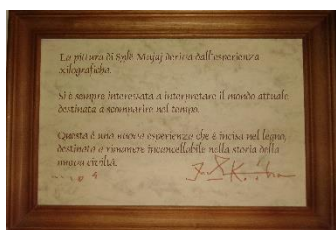 La pittura di Sylë Mujaj deriva dall'esperienza
xilografica.
Si è sempre interessata a interpretare il mondo attuale
destinata a scomparire nel tempo.
Questa è una nuova esperienza che è incisa nel legno,
destinata a rimanere incancellabile nella storia della
civiltà.